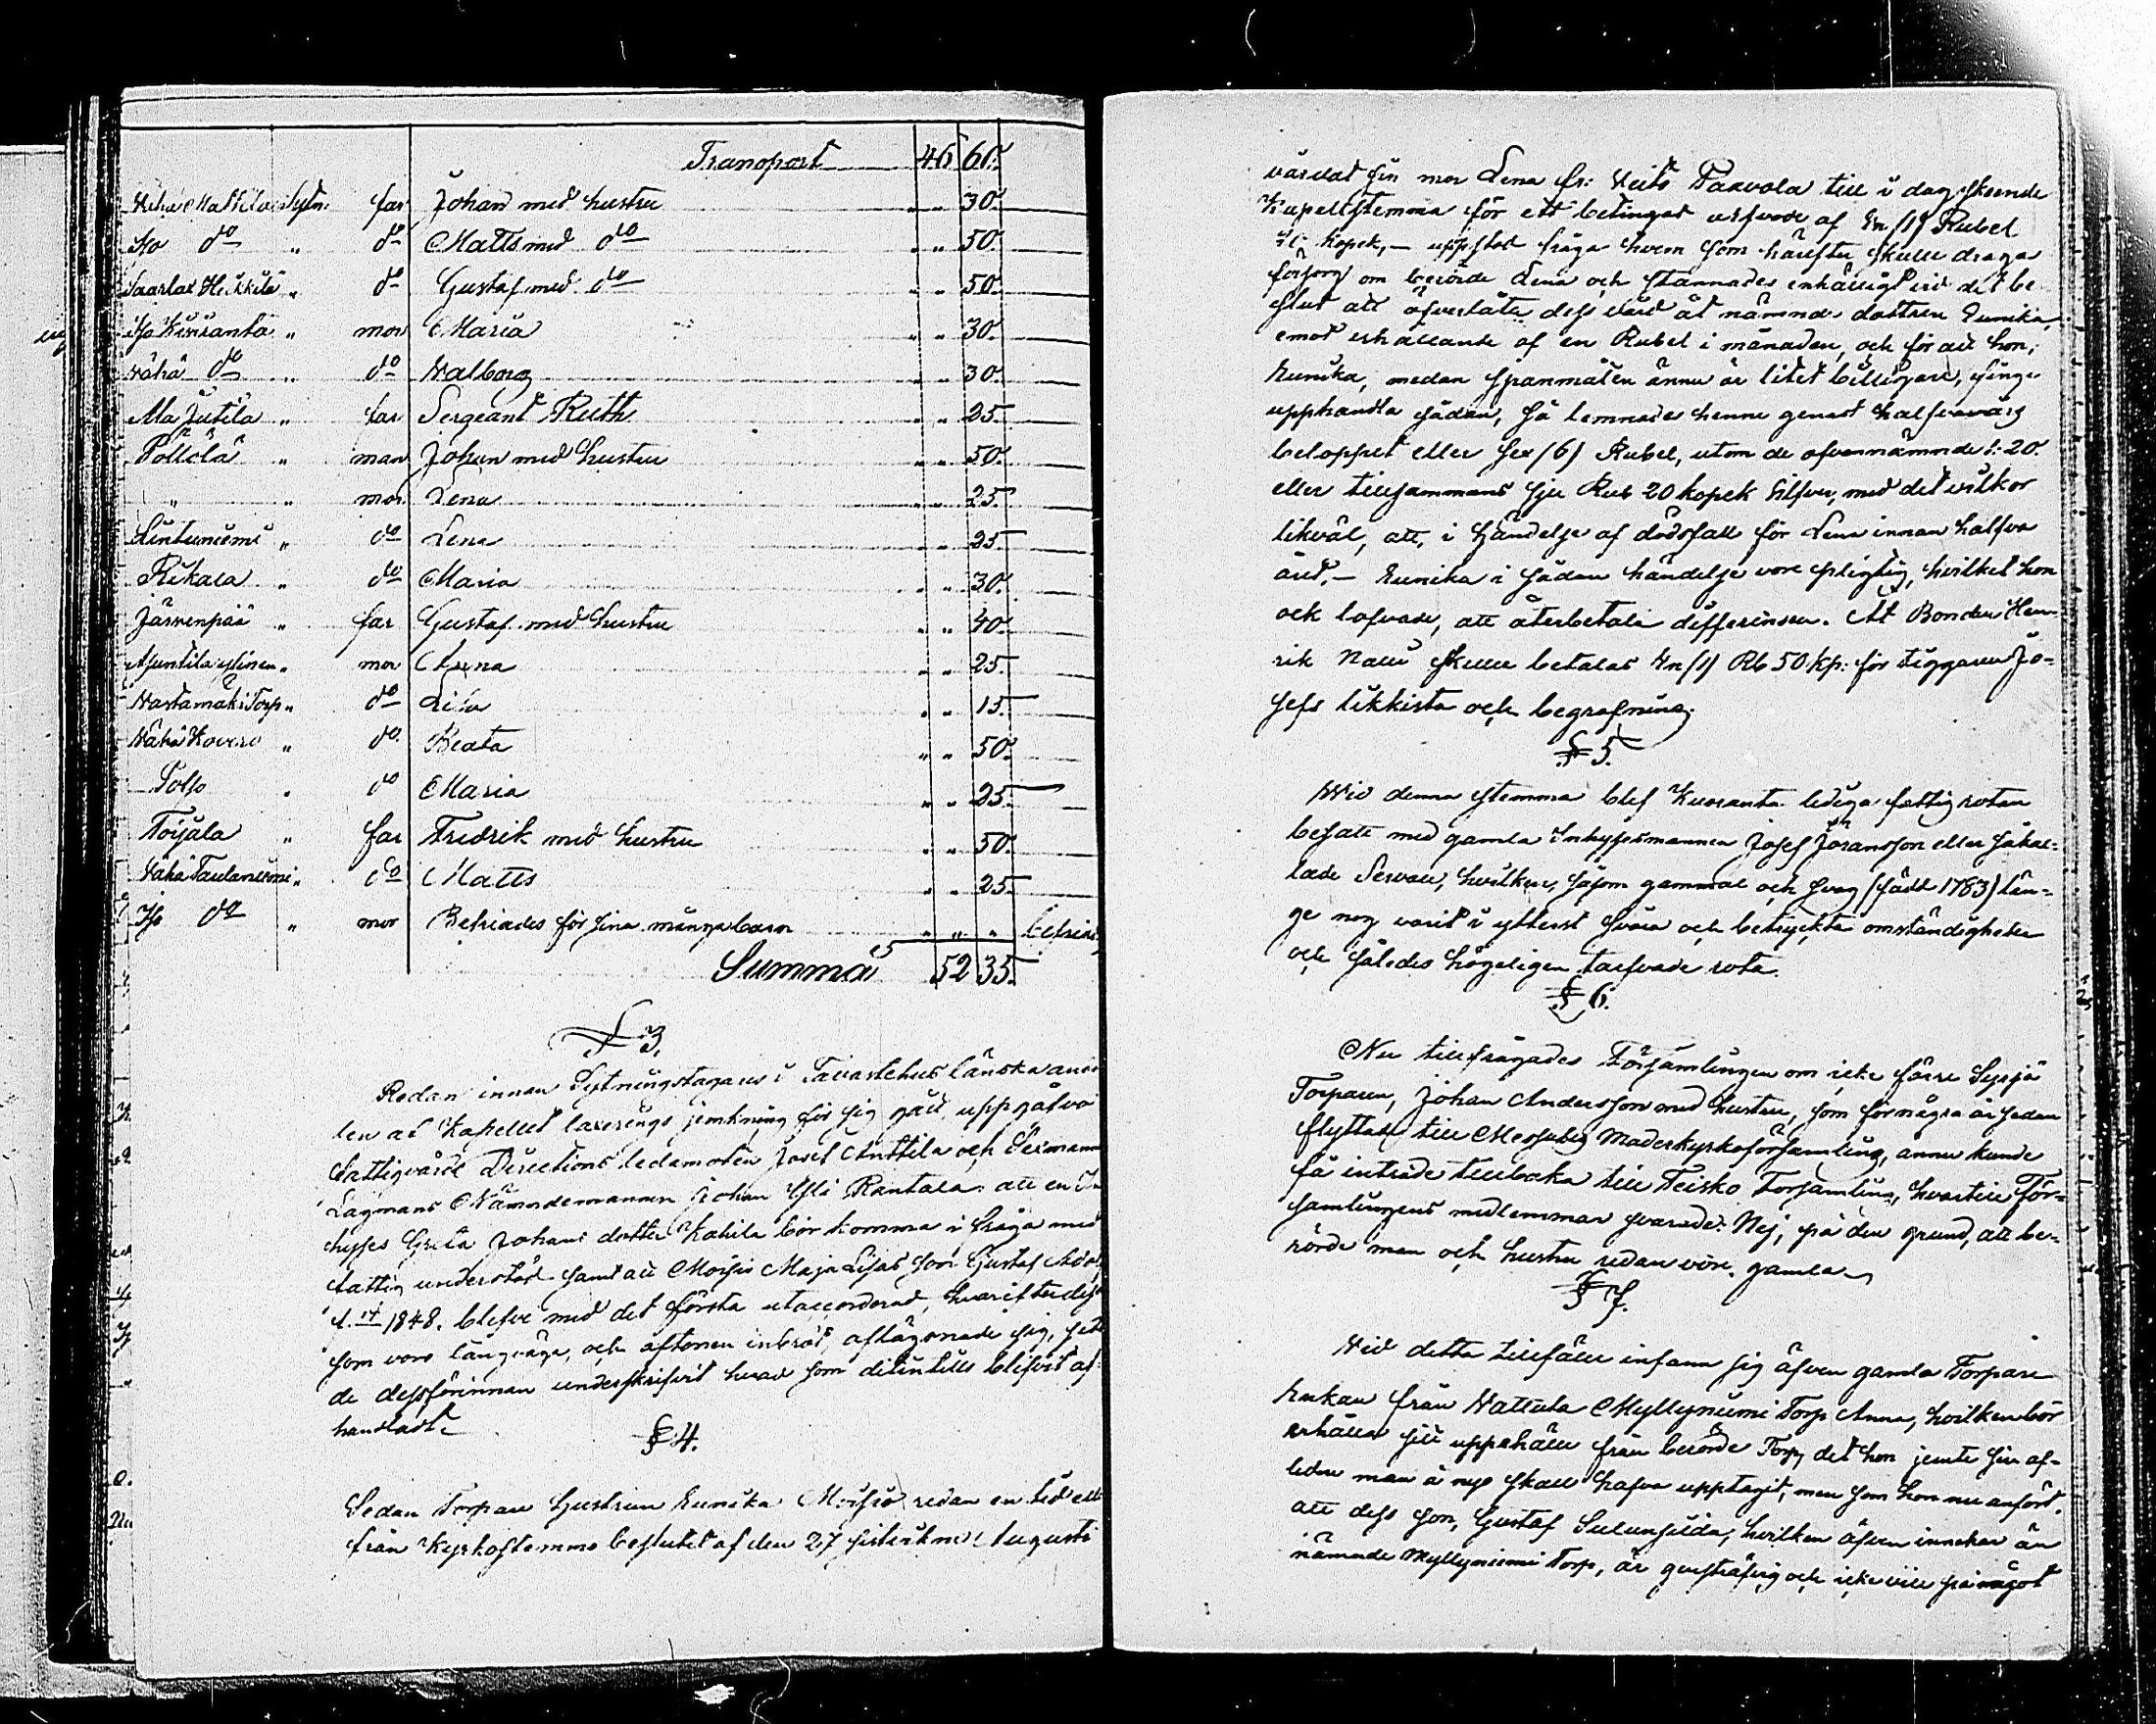 Transport 46 60.
far Johan med hustru " " 30.
Iso do " do Matts med do " " 50.
Saarlax Heikkilä " do Gustaf med do " " 50.
Iso Kuoranta " mor Maria " " 30.
Wähä do " do Walborg " " 30.
Ala Jutila " far Sergeant Ruth " " 25.
Pöllölä " man Johan med hustru " " 50.
" " mor Lena " " 25.
Lintuniemi " do Lena " " 25.
Rikala " do Maria " " 30.
Järvenpää " far Gustaf med hustru " " 40.
Anttila " mor Anna " " 25.
Torp " do Lisa " " 15.
Wähä Kovero " do Beata " " 50.
Polso " do Maria " " 25.
Toijala " far Fredrik med hustru " " 50.
Wähä Taulaniemi " do Matts " " 25.
Iso do " mor Befriades för sina många barn " " " befrias
Summa 52 35.
§ 3.
Redan innan Sytningstagares i Tavastehus länska
len af Kapellet taxerings jemkning för sig gått, uppgåfvo
Fattigvårds Directions ledamoten Josef Anttila och
Lagmans Nämndemannen Johan Yli Rantala att en In
hyses Greta Johans dotter Katila bör komma i fråga med
fattig understöd samt att Moisio Maja Lisas son Gustaf
1848. blefve med det första utaccorderad, hvarefter desse
som voro långväga, och aftonen inbröt, aflägsnade sig,
de dessförinnan underskrifvit hvad som dittintills blifvit af-
handladt.
§ 4.
Sedan Torpare hustrun Eunika Moisio redan en tid
från Kyrkostemmo beslutet af den 27 sistlidne Augusti
vårdat sin mor Lena fr: Paavola till i dag skeende
Kapellstemma för ett betingat arfvode af En (1) Rubel
20 kopek, — uppstod fråga hvem som härefter skulle draga
försorg om berörde Lena och stannades enhälligt vid det be
slut att öfverlåta dess vård åt nämnde dottren Eunika,
emot erhållande af en Rubel i månaden, och för att hon,
Eunika, medan spanmålen ännu är litet billigare, finge
upphandla sådan, så lemnades henne genast halfva års
beloppet eller sex (6) Rubel, utom de ofvannämnde 1: 20.
eller tillsammans sju Rub 20 kopek Silfver, med det vilkor
likväl, att, i händelse af dödsfall för Lena innan halfva
året, — Eunika i sådan händelse vore pligtig, hvilket hon
ock lofvade, att återbetala differensen. Åt Bonden Hen-
rik skulle betalas En (1) Rb 50 kp: för tiggaren Jo-
sefs likkista och begrafning.
§ 5.
Wid denna stemma blef Kuoranta lediga fattig rotan
besatt med gamla Inhysesmannen Josef Göransson eller såkal-
lade Servoll, hvilken, såsom gammal och svag (född 1783) län-
ge nog varit i ytterst svåra och betryckta omständigheter
och således högeligen tarfvade rota.
§ 6.
Nu tillfrågades Församlingen om icke förre Syrjä
Torparen, Johan Andersson med hustru, som för några år sedan
flyttade till Messuby Moderkyrkoförsamling, ännu kunde
få inträde tillbaka till Teisko Församling, hvartill För-
samlingens medlemmar svarade: Nej, på den grund, att be-
rörde man och hustru redan vore gamla.
§ 7.
Wid detta tillfälle infann sig äfven gamla Torpare
Enkan från Wattula Myllyniemi Torp Anna, hvilken bör
erhålla sitt uppehälle från berörde Torp, det hon jemte sin af-
lidne man å nyo skall hafva upptagit, men som hon nu anförde,
att dess son, Gustaf, hvilken äfven innehar än
nämnde Myllyniemi Torp, är genstäfvig och icke vill på något